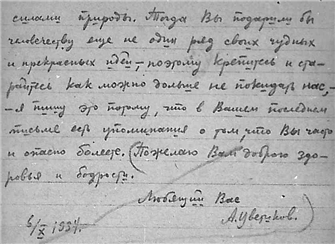 силами природы. Тогда Вы подарили бы
человечеству еще не один ряд своих чудных
и прекрасных идей, — поэтому крепитесь и ста-
райтесь как можно дольше не покидать нас —
— я пишу это потому, что в Вашем последнем
письме есть упоминания о том что Вы часто
и опасно болеете. (Пожелаю Вам доброго здо-
ровья и бодрости.
Любящий Вас
А. Цветиков.
6/X 1934.